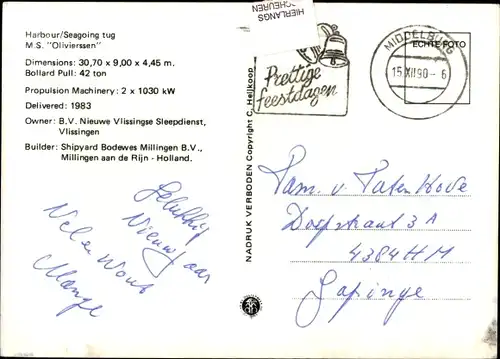 Harbour/Seagoing tug
M.S. "Olivierssen"
Dimensions: 30,70 x 9,00 x 4,45 m.
Bollard Pull: 42 ton
Propulsion Machinery: 2 x 1030 kW
Delivered: 1983
Owner: B.V. Nieuwe Vlissingse Sleepdienst,
Vlissingen
Builder: Shipyard Bodewes Millingen B.V.,
Millingen aan de Rijn - Holland.
Gelukkig
Nieuwjaar
Nel en Wout
HIERLANGS
SCHEUREN
Prettige
feestdagen
MIDDELBURG
15.XII.90- 6
ECHTE FOTO
NADRUK VERBODEN Copyright C. Heijkoop
Fam. v. Paten Hove
Dorpstraat 3A
4384HM
Gapinge